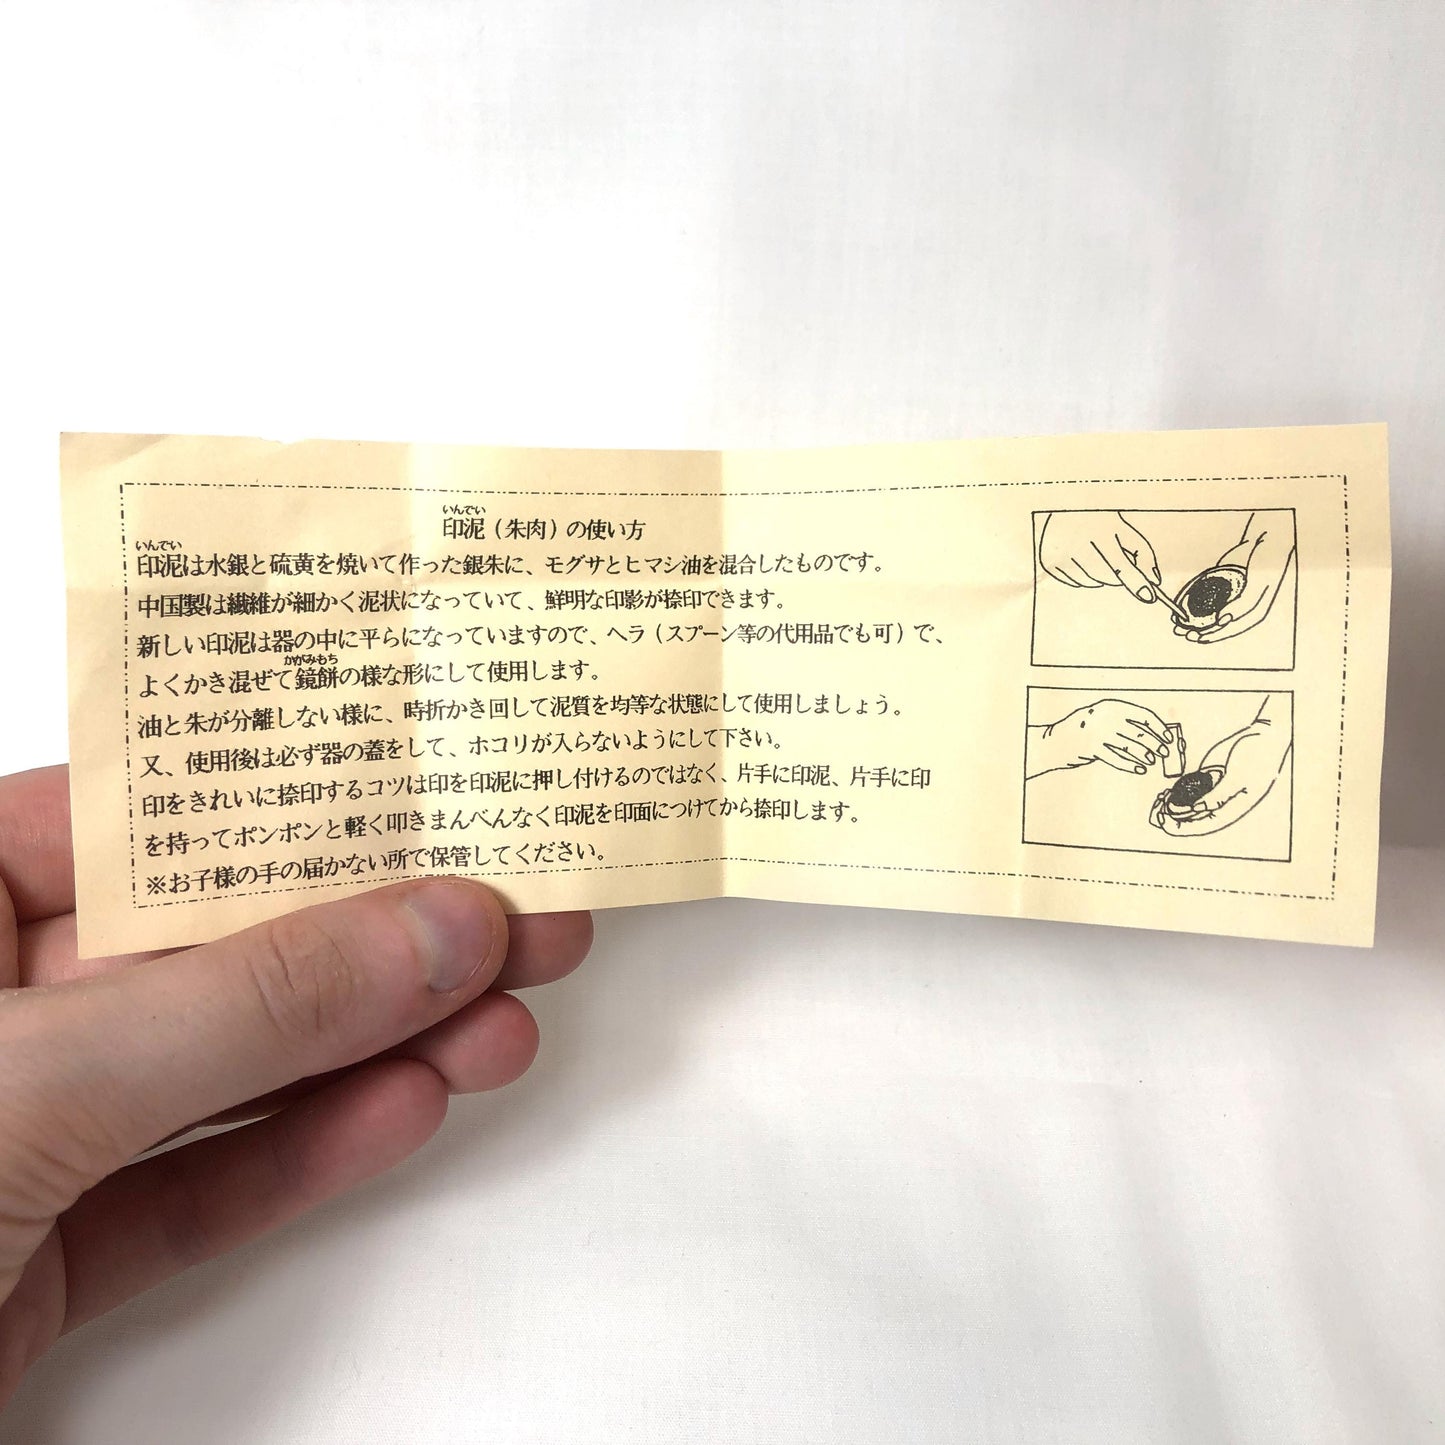 いんでい
印泥(朱肉)の使い方
いんでい
印泥は水銀と硫黄を焼いて作った銀朱に、モグサとヒマシ油を混合したものです。
中国製は繊維が細かく泥状になっていて、鮮明な印影が捺印できます。
新しい印泥は器の中に平らになっていますので、ヘラ(スプーン等の代用品でも可)で、
かがみもち
よくかき混ぜて鏡餅の様な形にして使用します。
油と朱が分離しない様に、時折かき回して泥質を均等な状態にして使用しましょう。
又、使用後は必ず器の蓋をして、ホコリが入らないようにして下さい。
印をきれいに捺印するコツは印を印泥に押し付けるのではなく、片手に印泥、片手に印
を持ってポンポンと軽く叩きまんべんなく印泥を印面につけてから捺印します。
※お子様の手の届かない所で保管してください。